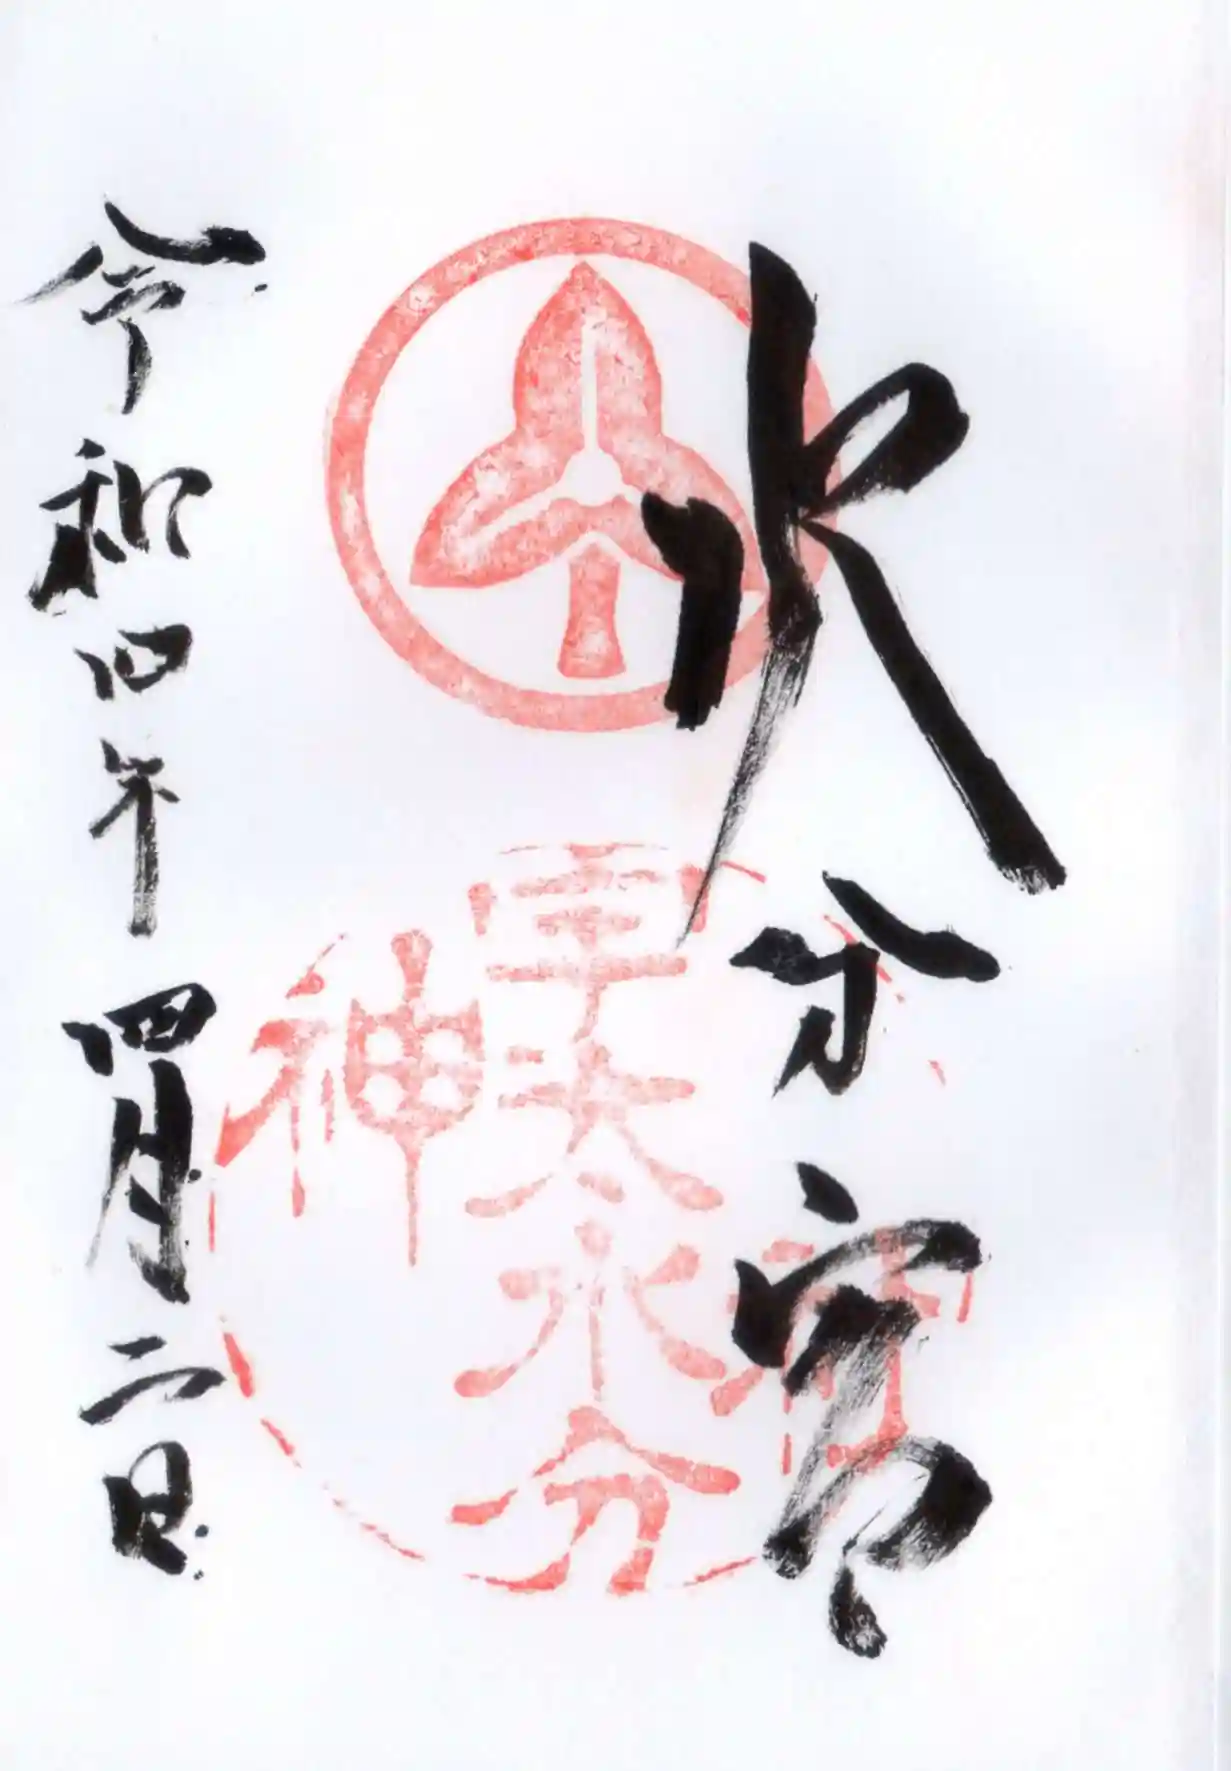 水分宮
宇太水分神社
令和四年四月二日